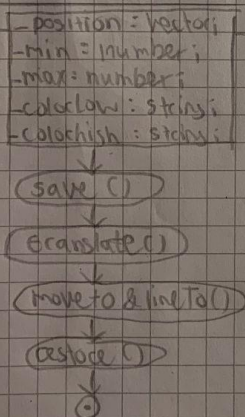 -position: vector;
-min: number;
-max: number;
-colorlow: string;
-colorhigh: string;
save()
translate()
moveto & lineTo()
restore()